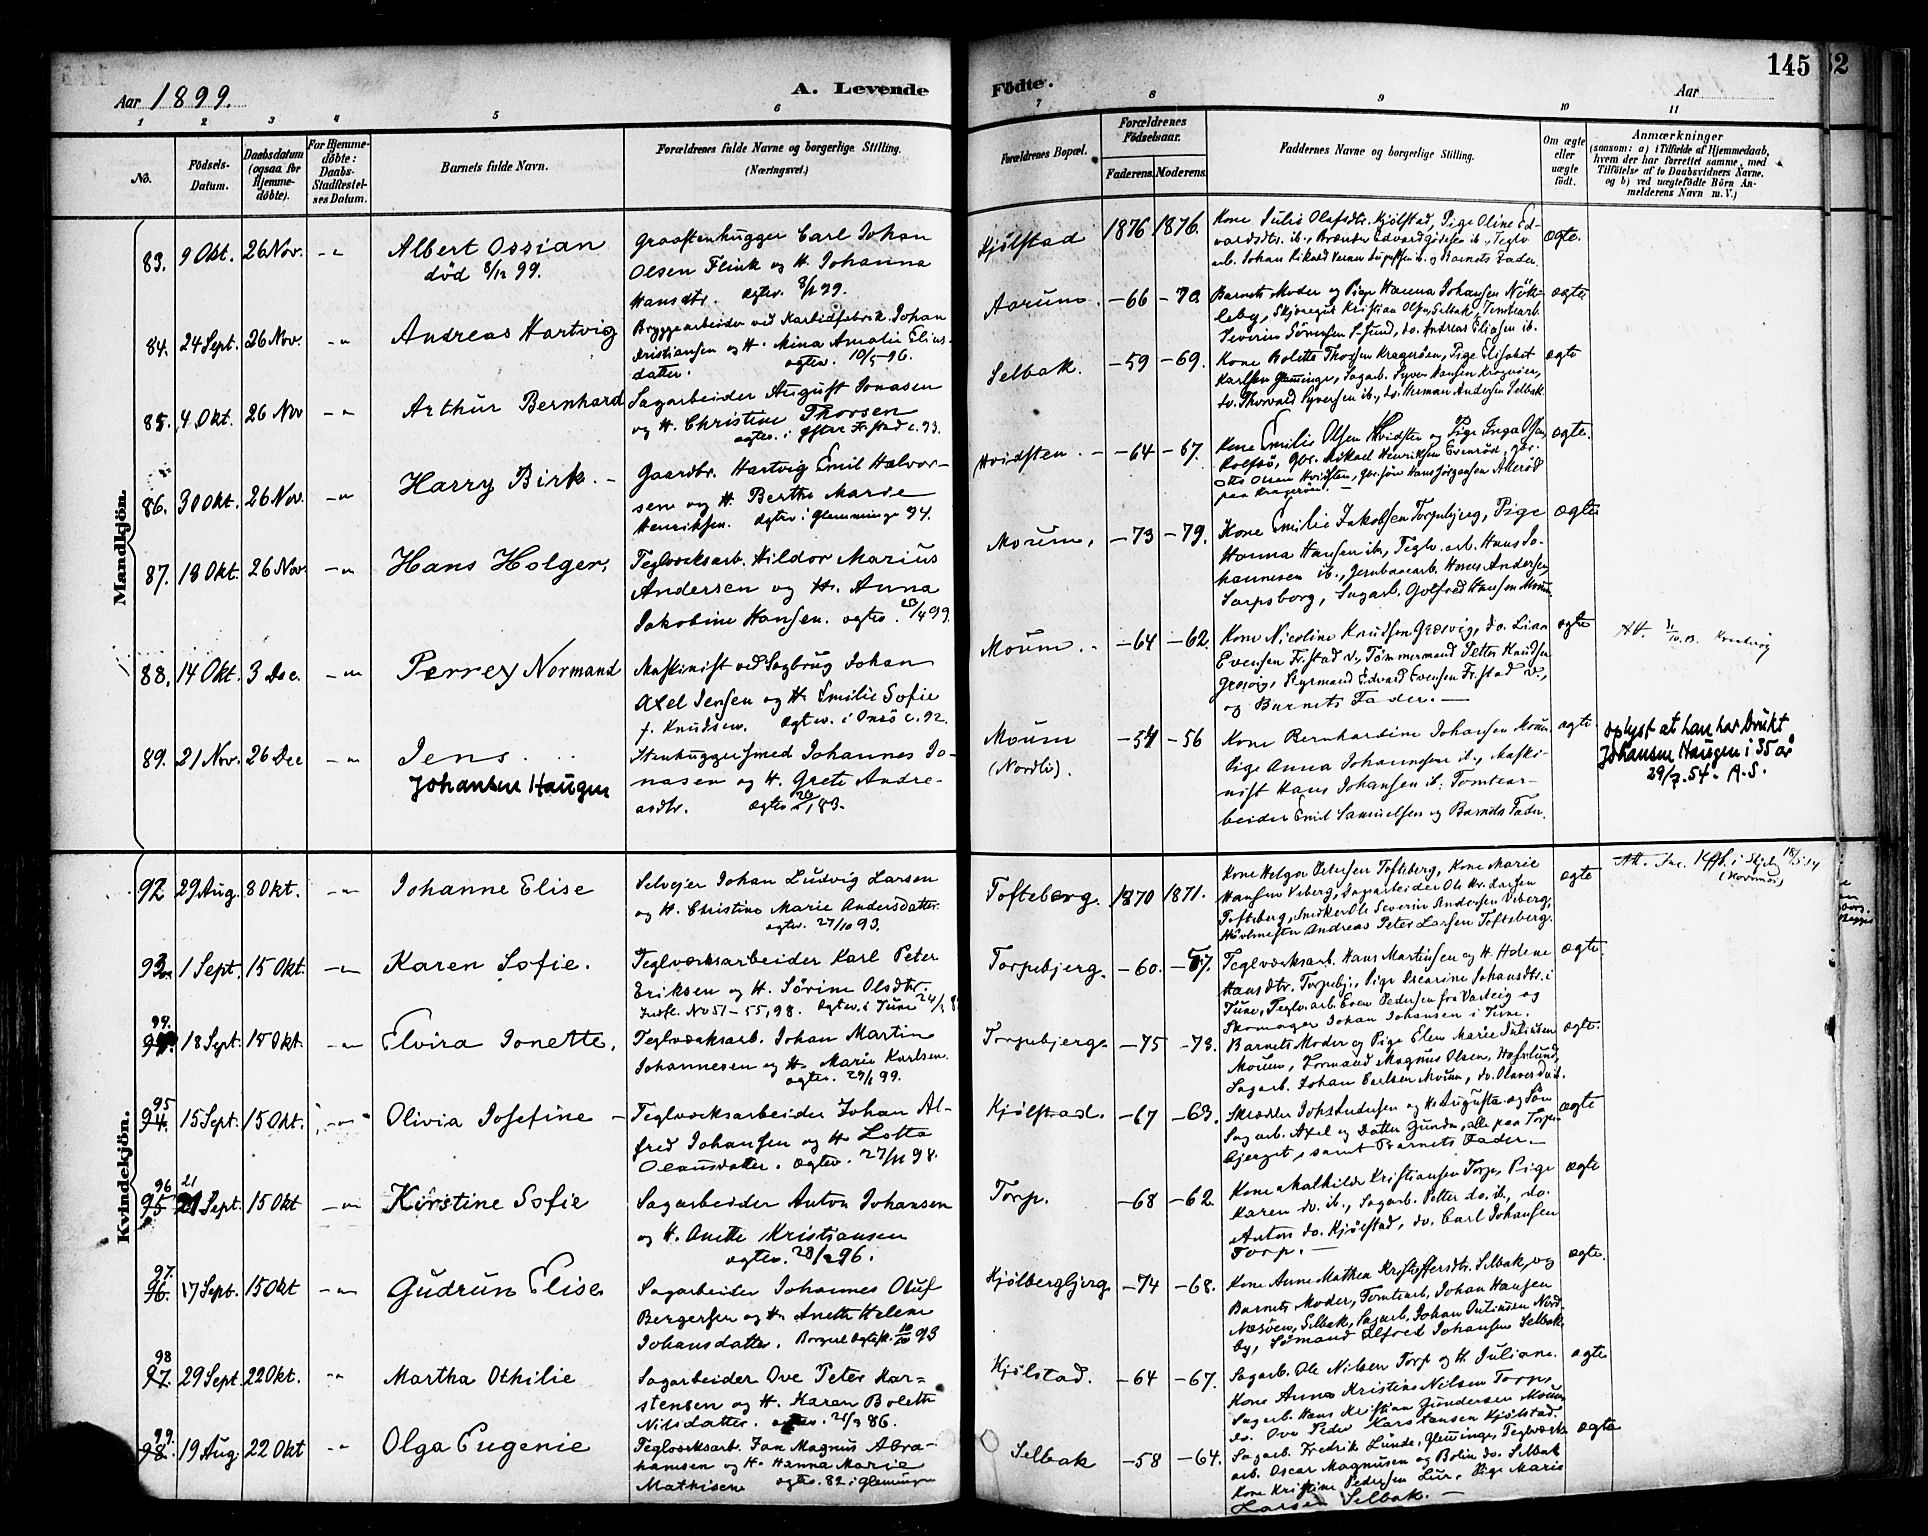 Aar 1899.
A. Levende
Födte.
145
52
Aar
1 2 3 4 5 6
7 8 9 10 11
No.
Födsels-Datum.
Daabsdatum (ogsaa for Hjemme-döbte).
For Hjemme-döbte: Daabs-Stadfæstel-ses Datum.
Barnets fulde Navn.
Forældrenes fulde Navne og borgerlige Stilling. (Næringsvei.)
Forældrenes Bopæl.
Forældrenes Födselsaar.
Faderens. Moderens.
Faddernes Navne og borgerlige Stilling.
Om ægte eller uægte födt.
Anmærkninger
(saasom: a) i Tilfælde af Hjemmedaab, hvem der har forrettet samme, med Tilföielse af to Daabsvidners Navne. og b) ved uægtefödte Börn An-melderens Navn m. V.)
Mandkjön.
83. 9 Okt. 26 Nov. -"-
Albert Ossian
död 8/12 99.
Graastenhugger Carl Johan
Olsen Flink og H. Johanna
Hansdtr. ægtev.
Kjölstad 1876 1876.
Kone Julie Olafsdtr. Kjølstad, Pige Oline Ed-
vardsdtr. ib.,
og Barnets Fader.
ægte.
84. 24 Sept. 26 Nov. -"-
Andreas Hartvig
Bryggearbeider ved Karbidfabrik Johan
Kristiansen og H. Mina Amalie Elias-
datter. ægtev. 10/5 -96.
Aarum. -66 -70.
Barnets Moder og Pige Hanna Johansen Nök-
leby, Kristian Olsen, Selbak, Tomtearb.
Severin Sörensen, do. Andreas Eliasen ib.
ægte
85. 4 Okt. 26 Nov -"-
Arthur Bernhard
Sagarbeider August Jonasen
og H. Christine Thorsen
ægtev. i Fr.stad c. 93.
Selbak. -59 -69.
Kone Bolette Thorsen Kragerøen, Pige Elisabet
Karlsen Glemminge, Sagarb. Syver Hansen Kragerøen,
do. Thorvald Syversen ib., do. Herman Andersen Selbak.
ægte
86. 30 Okt. 26 Nov. -"-
Harry Birk. -
Gaardbr. Hartvig Emil Halvor-
sen og H. Berthe Marie
Henriksen. ægtev. i Glemminge 94.
Hvidsten. -64 -67.
Kone Emilie Olsen Hvidsten og Pige Inga Olsen
Rolfsö, Gbr. Mikael Henriksen Evenröd, Gbr.
Otto Olsen Hvidsten, Hans Jörgensen
paa Kragerøen. -
ægte.
87. 18 Okt. 26 Nov -"-
Hans Holger.
Teglværksarb. Hildor Marius
Andersen og H. Anna
Jakobine Hansen. ægtev. 99.
Moum. -73 -79.
Kone Emilie Jakobsen Torpebjerg, Pige
Hanna Hansen ib., Teglv.arb. Hans Jo-
hannesen ib., Jernbanearb. Hans Andersen
Sarpsborg, Sagarb. Golfred Hansen Moum.
ægte
88. 14 Okt. 3 Dec. -"-
Perrey Normand
Maskinist ved Sagbrug Johan
Axel Jensen og H. Emilie Sofie
f. Knudsen. ægtev. i Onsö c. 92.
Moum. -64 -62.
Kone Nicoline Knudsen Gresvig, do. Lian
Evensen Fr.stad v., Tömmermand Petter Knudsen
Gresvig, Styrmand Edvard Evensen Fr.stad v.,
og Barnets Fader. -
ægte
Att.
89. 21 Nov. 26 Dec -"-
Jens.
Johansen Haugen
Stenhuggersmed Johannes Jo-
nasen og H. Grete Andre-
asdtr. ægtev. 83.
Moum (Nordli). -54 -56
Kone Bernhardine Johansen Moum
Pige Anna Johannesen ib., Maski-
nist Hans Johansen ib. Tomtear-
beider Emil Samuelsen og Barnets Fader.
ægte
oplyst at han har brukt
Johansen Haugen i 35 år
29/7.54. A.S.
Kvindekjön.
92 29 Aug. 8 Okt. -"-
Johanne Elise
Selveier Johan Ludvig Larsen
og H. Christine Marie Andersdatter.
ægtev. 27/10 93.
Tofteberg. 1870 1871.
Kone Helga Petersen Tofteberg, Kone Marie
Hansen Veberg, Sagarbeider Ole Hr. Larsen
Tofteberg, Snekker Ole Severin Andersen Veberg,
Andreas Peter Larsen Tofteberg.
ægte
93 1 Sept. 15 Okt. -"-
Karen Sofie.
Teglværksarbeider Karl Peter
Eriksen og H. Sörine Olsdtr.
Indfl. No 51-55, 98. ægtev. i Tune
Torpebjerg. -60. -57.
Teglværksarb. Hans Martinsen og H. Helene
Hansdtr. Torpebj., Pige Oscarine Johansdtr. i
Tune, Teglv.arb. Even Pedersen fra Varteig og
Skomager Johan Johansen i Tune.
ægte.
94. 18 Sept. 15 Okt -"-
Elvira Jonette.
Teglværksarb. Johan Martin
Johannesen og H. Marie Karlsen.
ægtev. 99.
Torpebjerg -75 -73.
Barnets Moder og Pige Elen Marie Julielsen
Moum, Formand Magnus Olsen, Hafslund,
Sagarb. Johan Carlsen Moum, do.
ægte.
95 94. 15 Sept. 15 Okt. -"-
Olivia Josefine -
Teglværksarbeider Johan Al-
fred Johansen og H. Lotta
Olausdatter. ægtev. 27/11 98.
Kjölstad. -67 -63.
Skrædder Johs. Andersen og H. Augusta og Sön
Sagarb. Axel og Datter Gunda, alle paa Torpe-
bjerget, samt Barnets Fader. -
ægte
96 95 21 Sept. 15 Okt -"-
Kirstine Sofie
Sagarbeider Anton Johansen
og H. Anette Kristiansen
ægtev. 28/2 96.
Torp. -68 -62.
Kone Mathilde Kristiansen Torp, Pige
Karen do. ib., Sagarb. Petter do. ib., do.
Anton do. Kjølstad, do. Carl Johansen
Torp. -
ægte
97. 96. 17 Sept. 15 Okt -"-
Gudrun Elise
Sagarbeider Johannes Oluf
Bergersen og H. Anette Helene
Johansdatter. Borgerl. Ægtesk. 93
Kjölbergbjerg -74 -68.
Kone Anne Mathea Kristoffersdtr. Selbak, og
Barnets Moder, Tomtearb. Johan Hansen
Næsöen, Selbak, Sagarb. Johan Julinsen Nord-
by, Sömand Alfred Johansen Selbak
ægte.
98 97. 29 Sept. 22 Okt. -"-
Martha Othilie
Sagarbeider Ove Peter Kar-
stensen og H. Karen Bolette
Nilsdatter. 86.
Kjölstad. -64 -67.
Sagarb. Ole Nilsen Torp og H. Juliane.
Kone Anna Kristine Nilsen Torp,
Sagarb. Hans Kristian Gundersen Moum
do. Ove Peder Karstensen Kjölstad.
ægte
99. 98. 19 Aug 22 Okt -"-
Olga Eugenie
Teglværksarb. Jan Magnus Abra-
hamsen og H. Hanna Marie
Mathisen ægtev. 82 i Glemminge
Selbak -58 -64.
Sagarb. Fredrik Lunde, Glemminge, Teglværks-
arb. Oscar Magnusen og Bolin do. Selbak
Kone Kristine Pedersen Lur, Pige Marie
Larsen Selbak. -
ægte